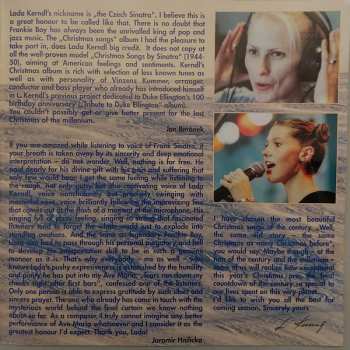 Lada Kerndl's nickname is „the Czech Sinatra". I believe this is
a great honour to be called like that. There is no doubt that
Frankie Boy has always been the unrivalled king of pop and
jazz music. The „Christmas songs" album I had the pleasure to
take part in, does Lada Kerndl big credit. It does not copy at
all the well-proven model „Christmas Songs by Sinatra" (1944-
50), aiming at American feelings and sentiments. Kerndl's
Christmas album is rich with selection of less known tunes as
well as with personality of Vinzenz Kummer, arranger,
conductor and bass player who already has introduced himself
in L. Kerndl's previous project dedicated to Duke Ellington's 100
birthday anniversary („Tribute to Duke Ellington" album).
You couldn't possibly get or give better present for the last
Christmas of the millenium.
Jan
If you are amazed while listening to voice of Frank Sinatra, if
your breath is taken away by its sincerity and deep emotional
interpretation – do not wonder. Well, nothing is for free. He
paid dearly for his divine gift with his pain and suffering that
only few could bear. I get the same feeling while listening to
the rough, not only gutsy but also captivating voice of Lada
Kerndl, voice comfortably but precisely swinging with
masterful ease, voice brilliantly following the improvising line
that comes out of the flash of a moment at the microphone. His
singing full of glass feeling, singing of
tend to forget the
standing ovations. And the same as
Lada had to pass through his personal purgatory, and had
to develop the interpretation skills to be in such a genuine
honour as it is. That's why everybody – me as well – who
knows Lada's pushy expressiveness is astonished by the humility
and purity he has put into his Ave Maria. „Tears ran down my
cheeks right after first bars", confessed one of the listeners.
Only one person is able to express gratitude by such silent and
sincere prayer. The one who already has come in touch with the
mysterious world behind the final curtain we know nothing
about so far. As a composer, I truly cannot imagine any better
performance of Ave Maria whatsoever and I consider it as the
greatest honour I'd expect. Thank you, Lada!
Jaromír Hnilička
I have chosen the most beautiful
Christmas songs of the century. „Well,
the same old story – the same
Christmas as many Christmas before",
you would say. Maybe thought, at the
end of the century and the millenium –
some of us will realise how essential is
this year's Christmas peace, the final
countdown of the time reserved to spend
our lives spent on this very planet.
I'd like to wish you all the best for
coming season. Sincerely yours